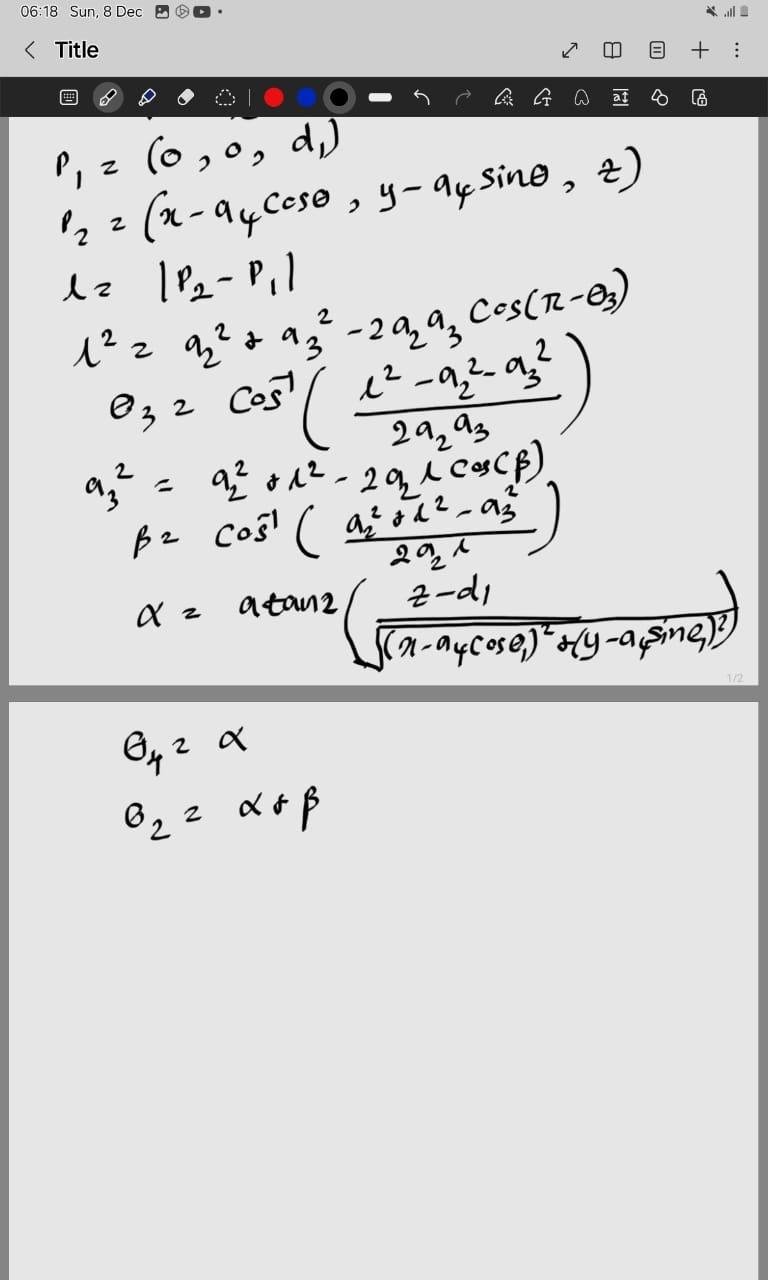 06:18 Sun, 8 Dec
Title
P₁ = (0, 0, d₁)
P₂ = (x - a₄ cosθ, y - a₄ sinθ, z)
l = |P₂ - P₁|
l² = a₂² + a₃² - 2a₂a₃ Cos(π - θ₃)
θ₃ = Cos⁻¹ ( (l² - a₂² - a₃²) / (2a₂a₃) )
a₃² = a₂² + l² - 2a₂ l cos(β)
β = Cos⁻¹ ( (a₂² + l² - a₃²) / (2a₂ l) )
α = atan2 ( (z - d₁) / √((x - a₄cosθ₁)² + (y - a₄sinθ₁)²) )
1/2
θ₄ = α
θ₂ = α + β